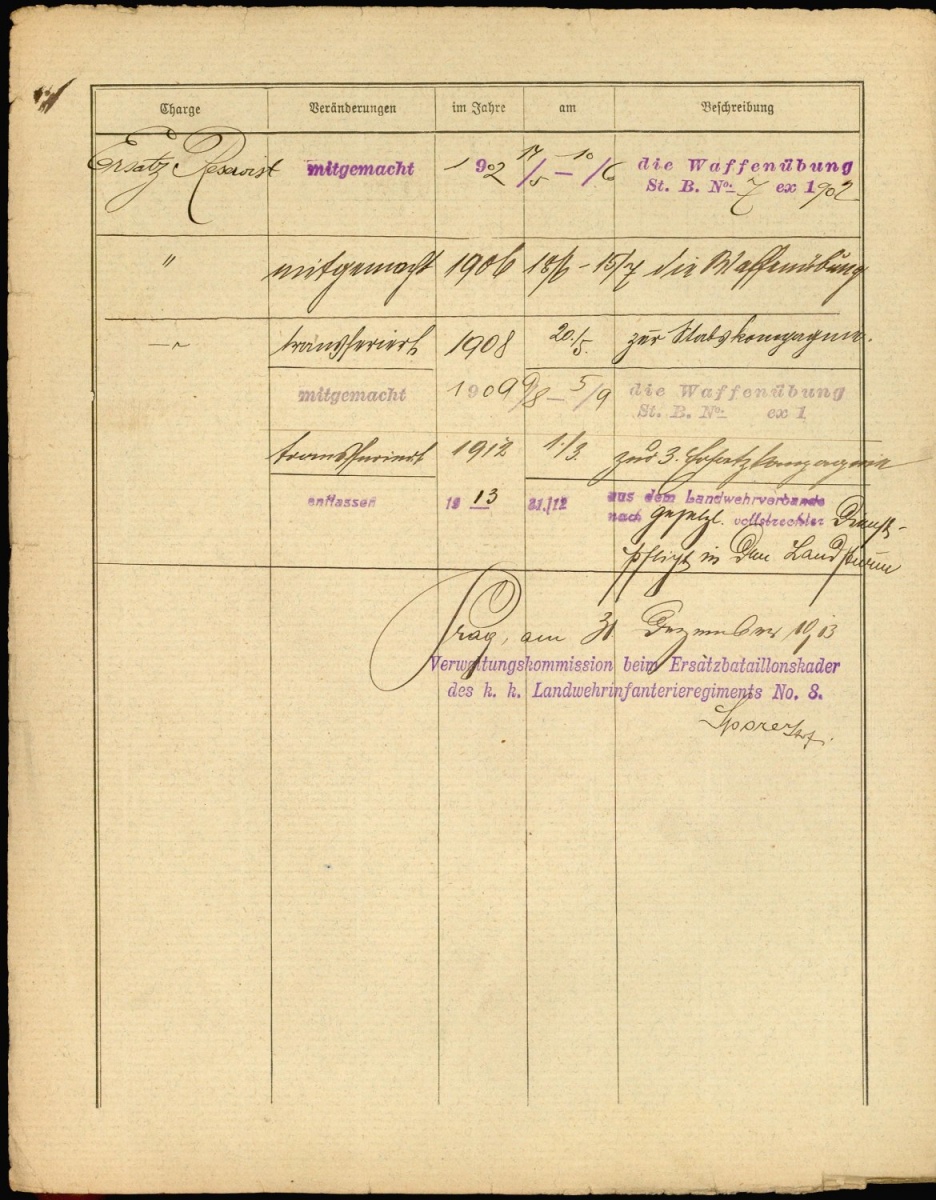 Charge Veränderungen im Jahre am Beschreibung
Ersatz Reservist mitgemacht 1902 17/5 – 10/6 die Waffenübung
St. B. No. 7 ex 1902
" mitgemacht 1906 18/6 – 15/7 die Waffenübung
–"– transferiert 1908 20./5. zur Stabskompagnie.
mitgemacht 1909 9/8 – 5/9 die Waffenübung
St. B. No. ex 1
transferiert 1912 1./3. zur 3. Ersatzkompagnie
entlassen 1913 31./12 aus dem Landwehrverbande
nach gesetzl. vollstreckter Dienst-
pflicht in den Landsturm
Prag, am 31 Dezember 1913
Verwaltungskommission beim Ersatzbataillonskader
des k. k. Landwehrinfanterieregiments No. 8.